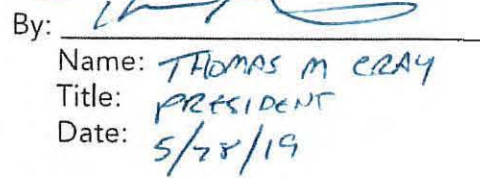 By:
Name: THOMAS M CRAY
Title: PRESIDENT
Date: 5/28/19